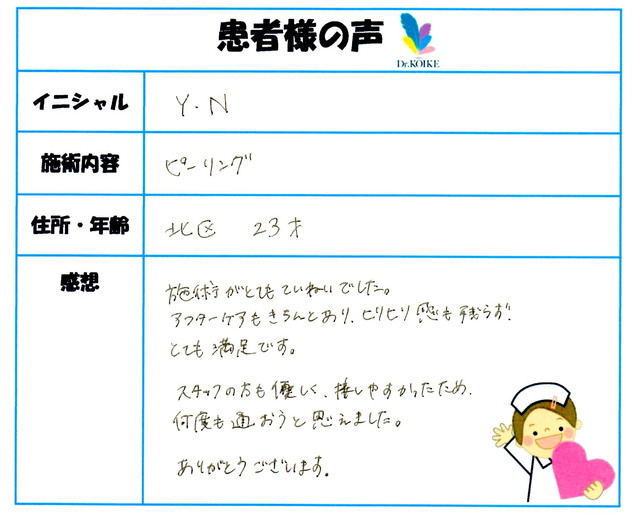 患者様の声
Dr.KOIKE
イニシャル Y.N
施術内容 ピーリング
住所・年齢 北区 23才
感想
施術がとてもていねいでした。
アフターケアもきちんとあり、ヒリヒリ感も残らず!
とても満足です。
スタッフの方も優しく、接しやすかったため、
何度も通おうと思えました。
ありがとうございます。